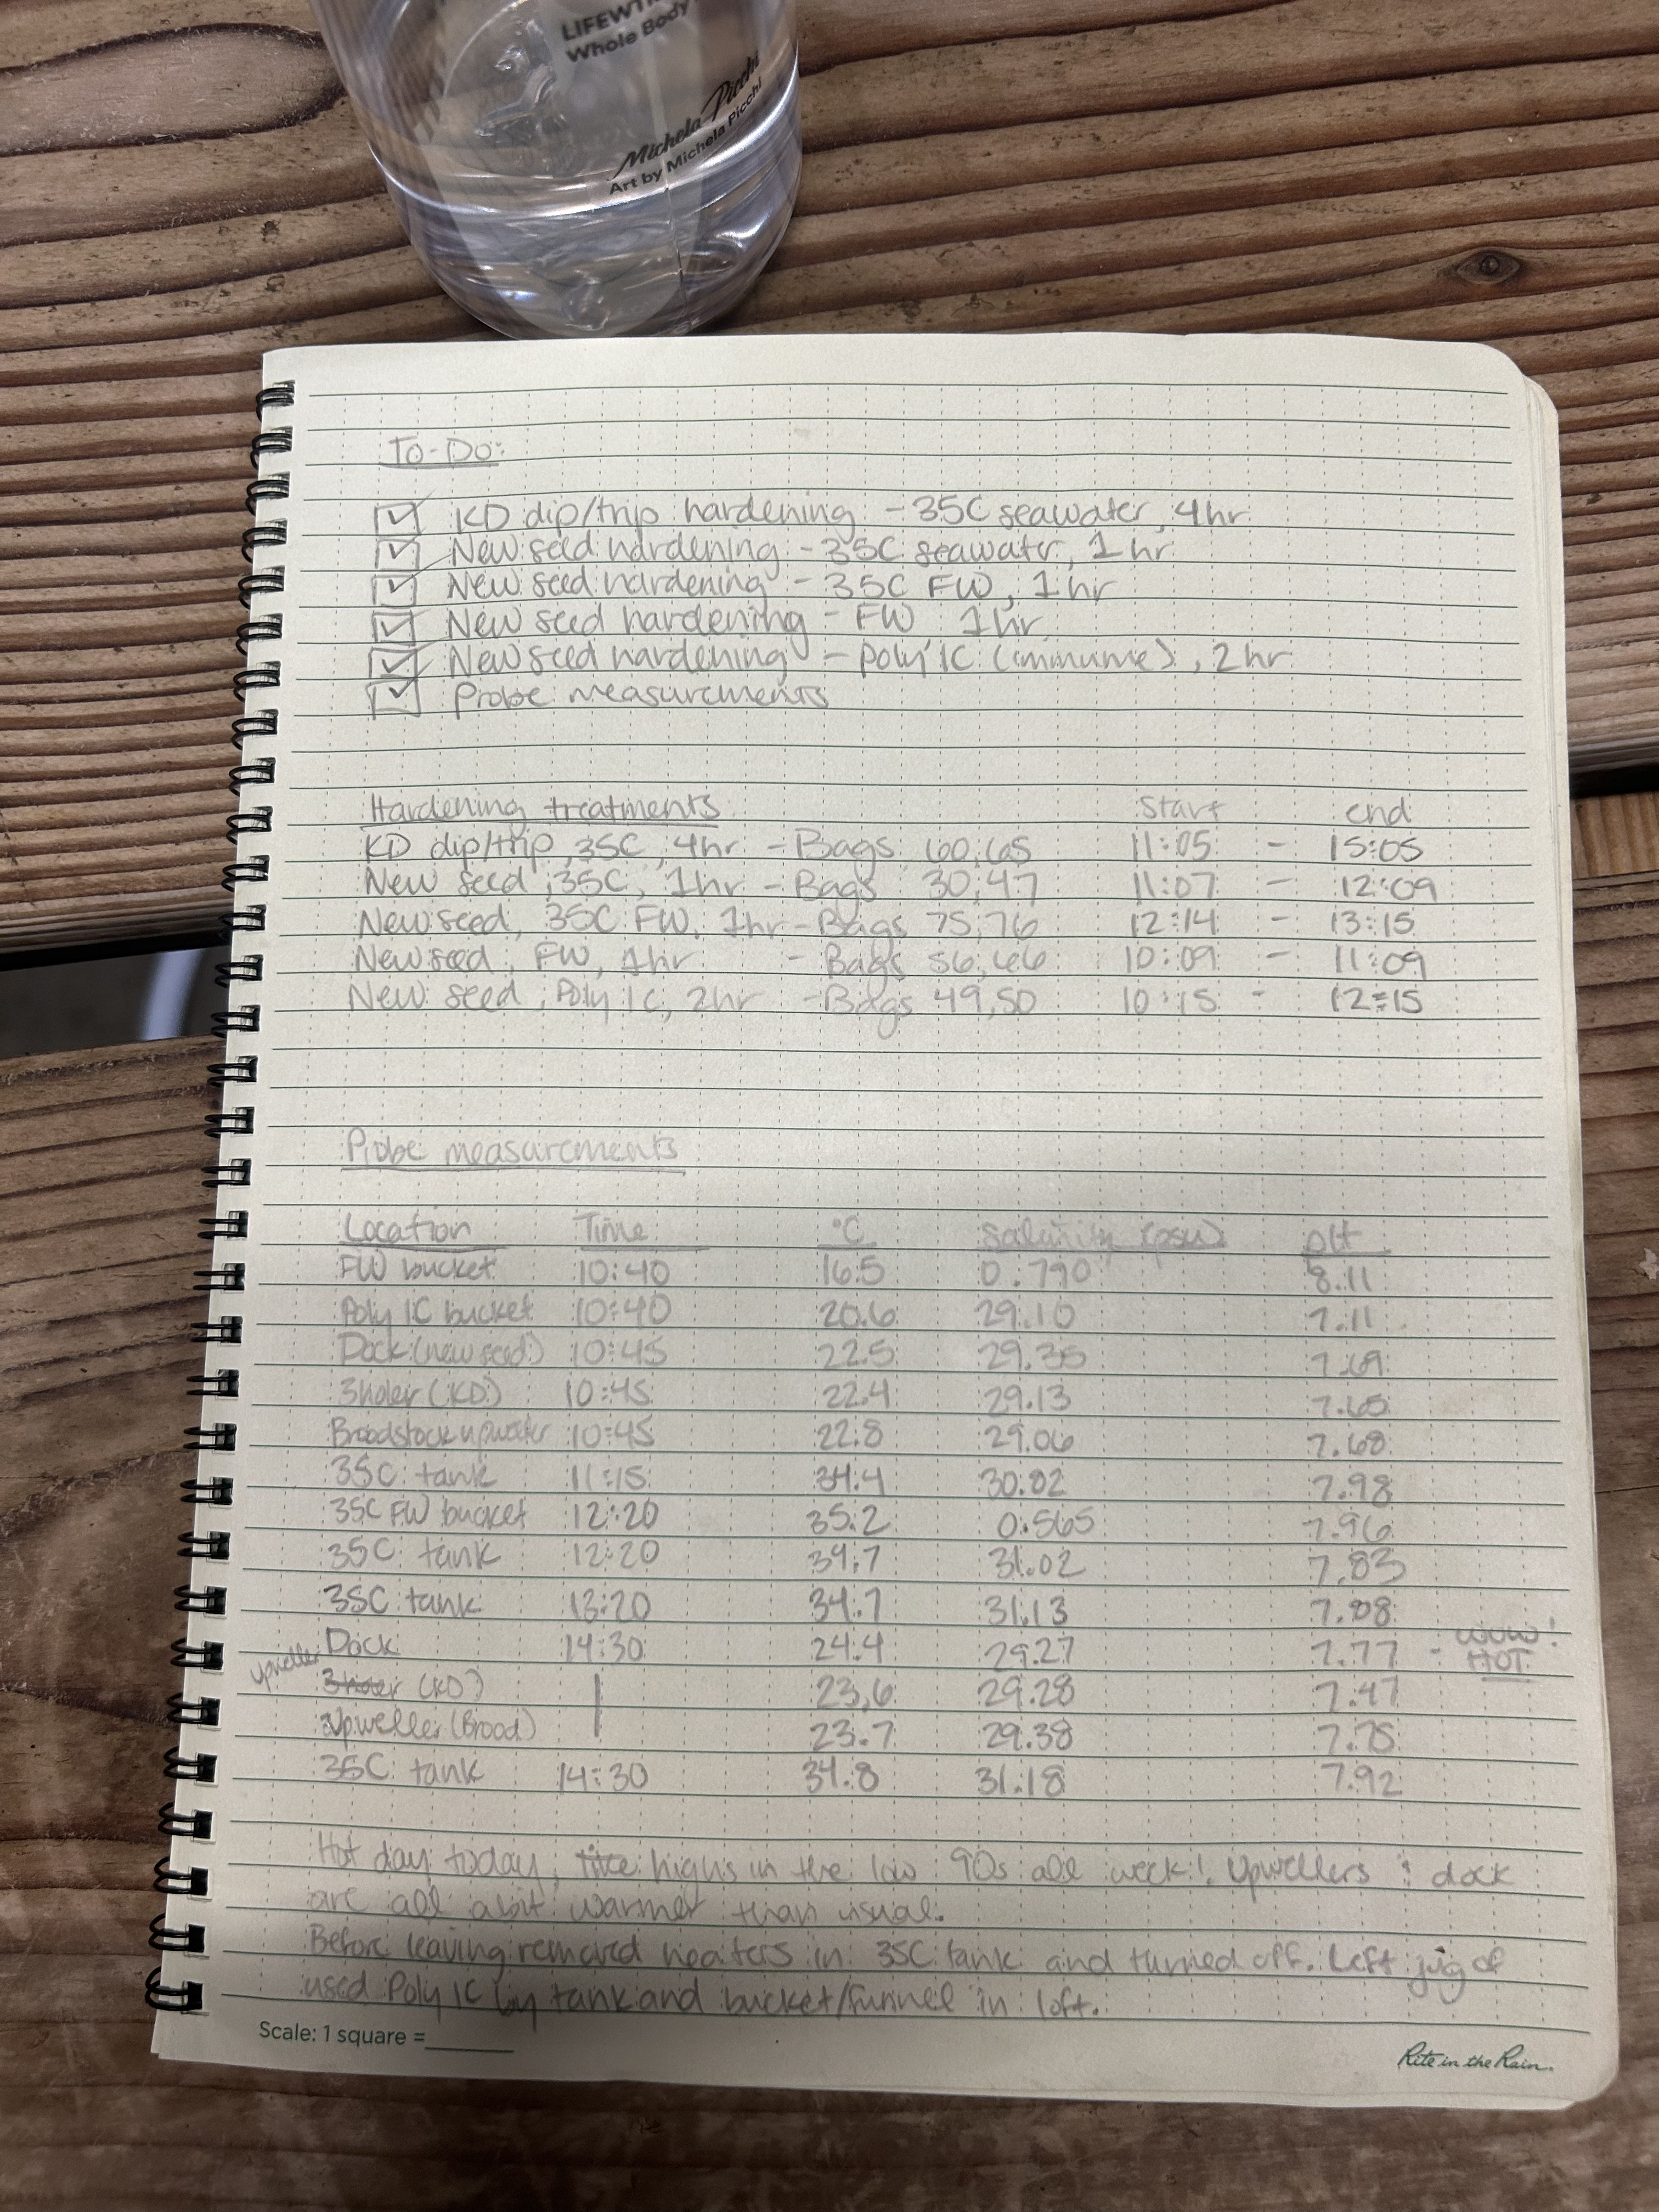 LIFEWTR
Whole Body
Michela Picchi
Art by Michela Picchi
To-Do:
KD dip/trip hardening - 35C seawater, 4hr
New seed hardening - 35C seawater, 1 hr
New seed hardening - 35C FW, 1hr
New seed hardening - FW 1hr
New seed hardening - Poly IC (immune), 2 hr
Probe measurements
Hardening treatments start end
KD dip/trip, 35C, 4hr - Bags 60,65 11:05 - 15:05
New seed, 35C, 1hr - Bags 30,47 11:07 - 12:09
New seed, 35C FW, 1hr - Bags 75,76 12:14 - 13:15
New seed, FW, 1hr - Bags 56,66 10:09 - 11:09
New seed, Poly IC, 2hr - Bags 49,50 10:15 - 12:15
Probe measurements
Location Time °C Salinity (psu) pH
FW bucket 10:40 16.5 0.790 8.11
Poly IC bucket 10:40 20.6 29.10 7.11
Dock (new seed) 10:45 22.5 29.35 7.69
3holer (KD) 10:45 22.4 29.13 7.65
Broodstock upweller 10:45 22.8 29.06 7.68
35C tank 11:15 34.4 30.82 7.98
35C FW bucket 12:20 35.2 0.565 7.96
35C tank 12:20 34.7 31.02 7.83
35C tank 13:20 34.7 31.13 7.88
Dock 14:30 24.4 29.27 7.77 - WOW! HOT
upweller 3holer (KD) | 23.6 29.28 7.47
Upweller (Brood) 23.7 29.38 7.75
35C tank 14:30 34.8 31.18 7.92
Hot day today, highs in the low 90s all week! Upwellers & dock
are all a bit warmer than usual.
Before leaving removed heaters in 35C tank and turned off. Left jug of
used Poly IC by tank and bucket/funnel in loft.
Scale: 1 square =
Rite in the Rain